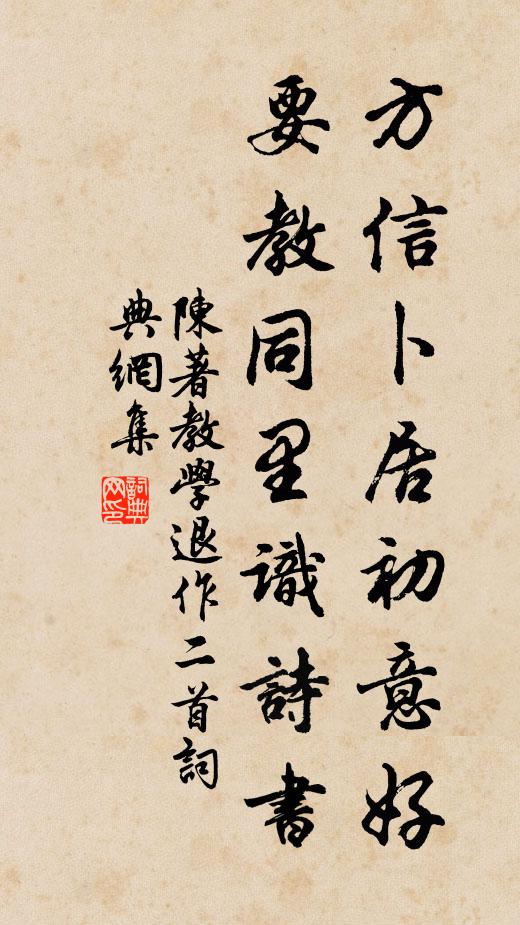 方信卜居初意好
要教同里識詩書
陳著教學退作二首詞
典網集
詞典
网印